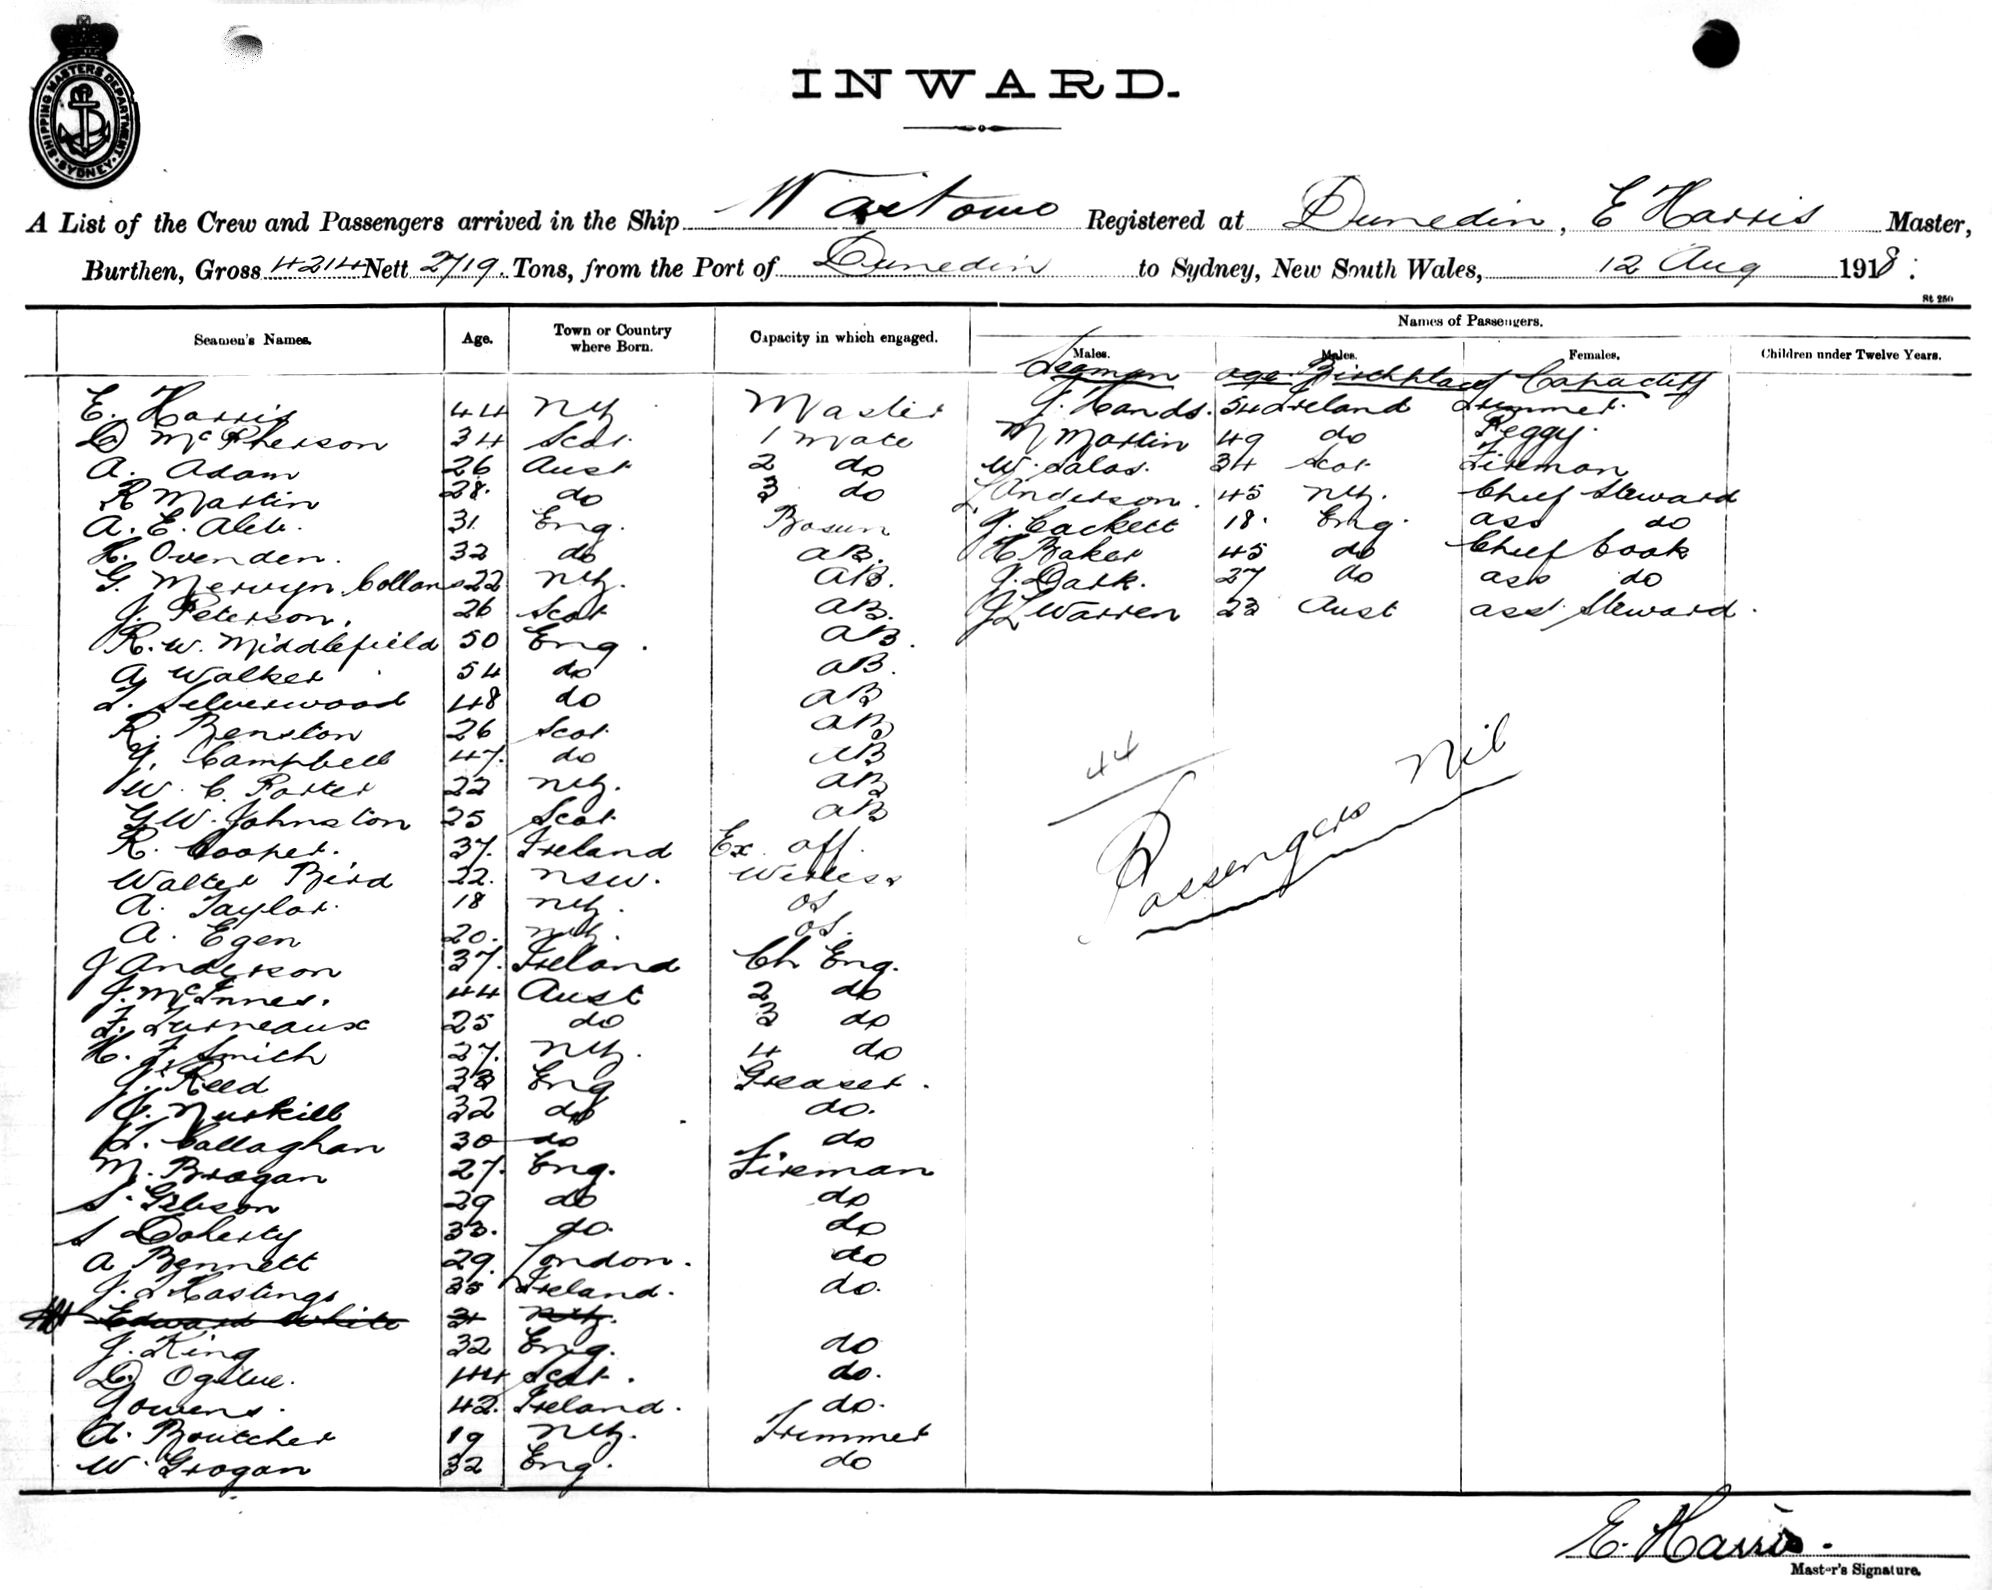 SHIPPING MASTERS DEPARTMENT · SYDNEY ·
INWARD.
A List of the Crew and Passengers arrived in the Ship Waitomo Registered at Dunedin, E Harris Master,
Burthen, Gross 4214 Nett 2719. Tons, from the Port of Dunedin to Sydney, New South Wales, 12 Aug 1918.
St 250
Seamen's Names. Age. Town or Country where Born. Capacity in which engaged. Names of Passengers.
Males. Males. Females. Children under Twelve Years.
Seaman age Birthplace Capacity
E. Harris 44 NZ Master J. Hands. 54 Ireland Trimmer.
D McPherson 34 Scot 1 Mate M Martin 49 do Peggy.
A. Adam 26 Aust 2 do W. 34 Scot Fireman
R Martin 28. do 3 do Anderson. 45 NZ. Chief Steward
A. E. 31 Eng. Bosun J. Cackett 18. Eng. ass do
H. Ovenden. 32 do AB. H Baker 45 do Chief Cook
G. Merwyn Collans 22 NZ. AB. J. Dark. 27 do ass do
J. Peterson. 26 Scot AB. J L Warren 23 Aust ass Steward.
R. W. Middlefield 50 Eng. AB.
A Walker 54 do AB.
T. Silverwood 48 do AB
R. Benston 26 Scot. AB
J. Campbell 47. do AB
W. C. Porter 22 NZ. AB
G W. Johnston 25 Scot AB
R. Cooper. 37. Ireland Ex off.
Walter Bird 22. NSW. Wireless
A. Taylor. 18 NZ. OS
A. Egen 20. NZ. OS.
J Anderson 37. Ireland Ch Eng.
J. McInnes. 44 Aust 2 do
F. Furneaux 25 do 3 do
H. F. Smith 27. NZ. 4 do
J. Reed 33 Eng Greaser.
J. Nuskill 32 do do.
T. Callaghan 30 do do
M. Brogan 27. Eng. Fireman
S. Gibson 29 do do
S Doherty 33. do. do
A Bennett 29. London. do
J. T Hastings 35 Ireland. do.
Edward White 31 NZ.
J. King 32 Eng. do
D. Ogilvie. 44 Scot. do.
J Owens. 42. Ireland. do.
A. Boutcher 19 NZ. Trimmer
W. Grogan 32 Eng. do
44
Passengers Nil
E. Harris.
Master's Signature.